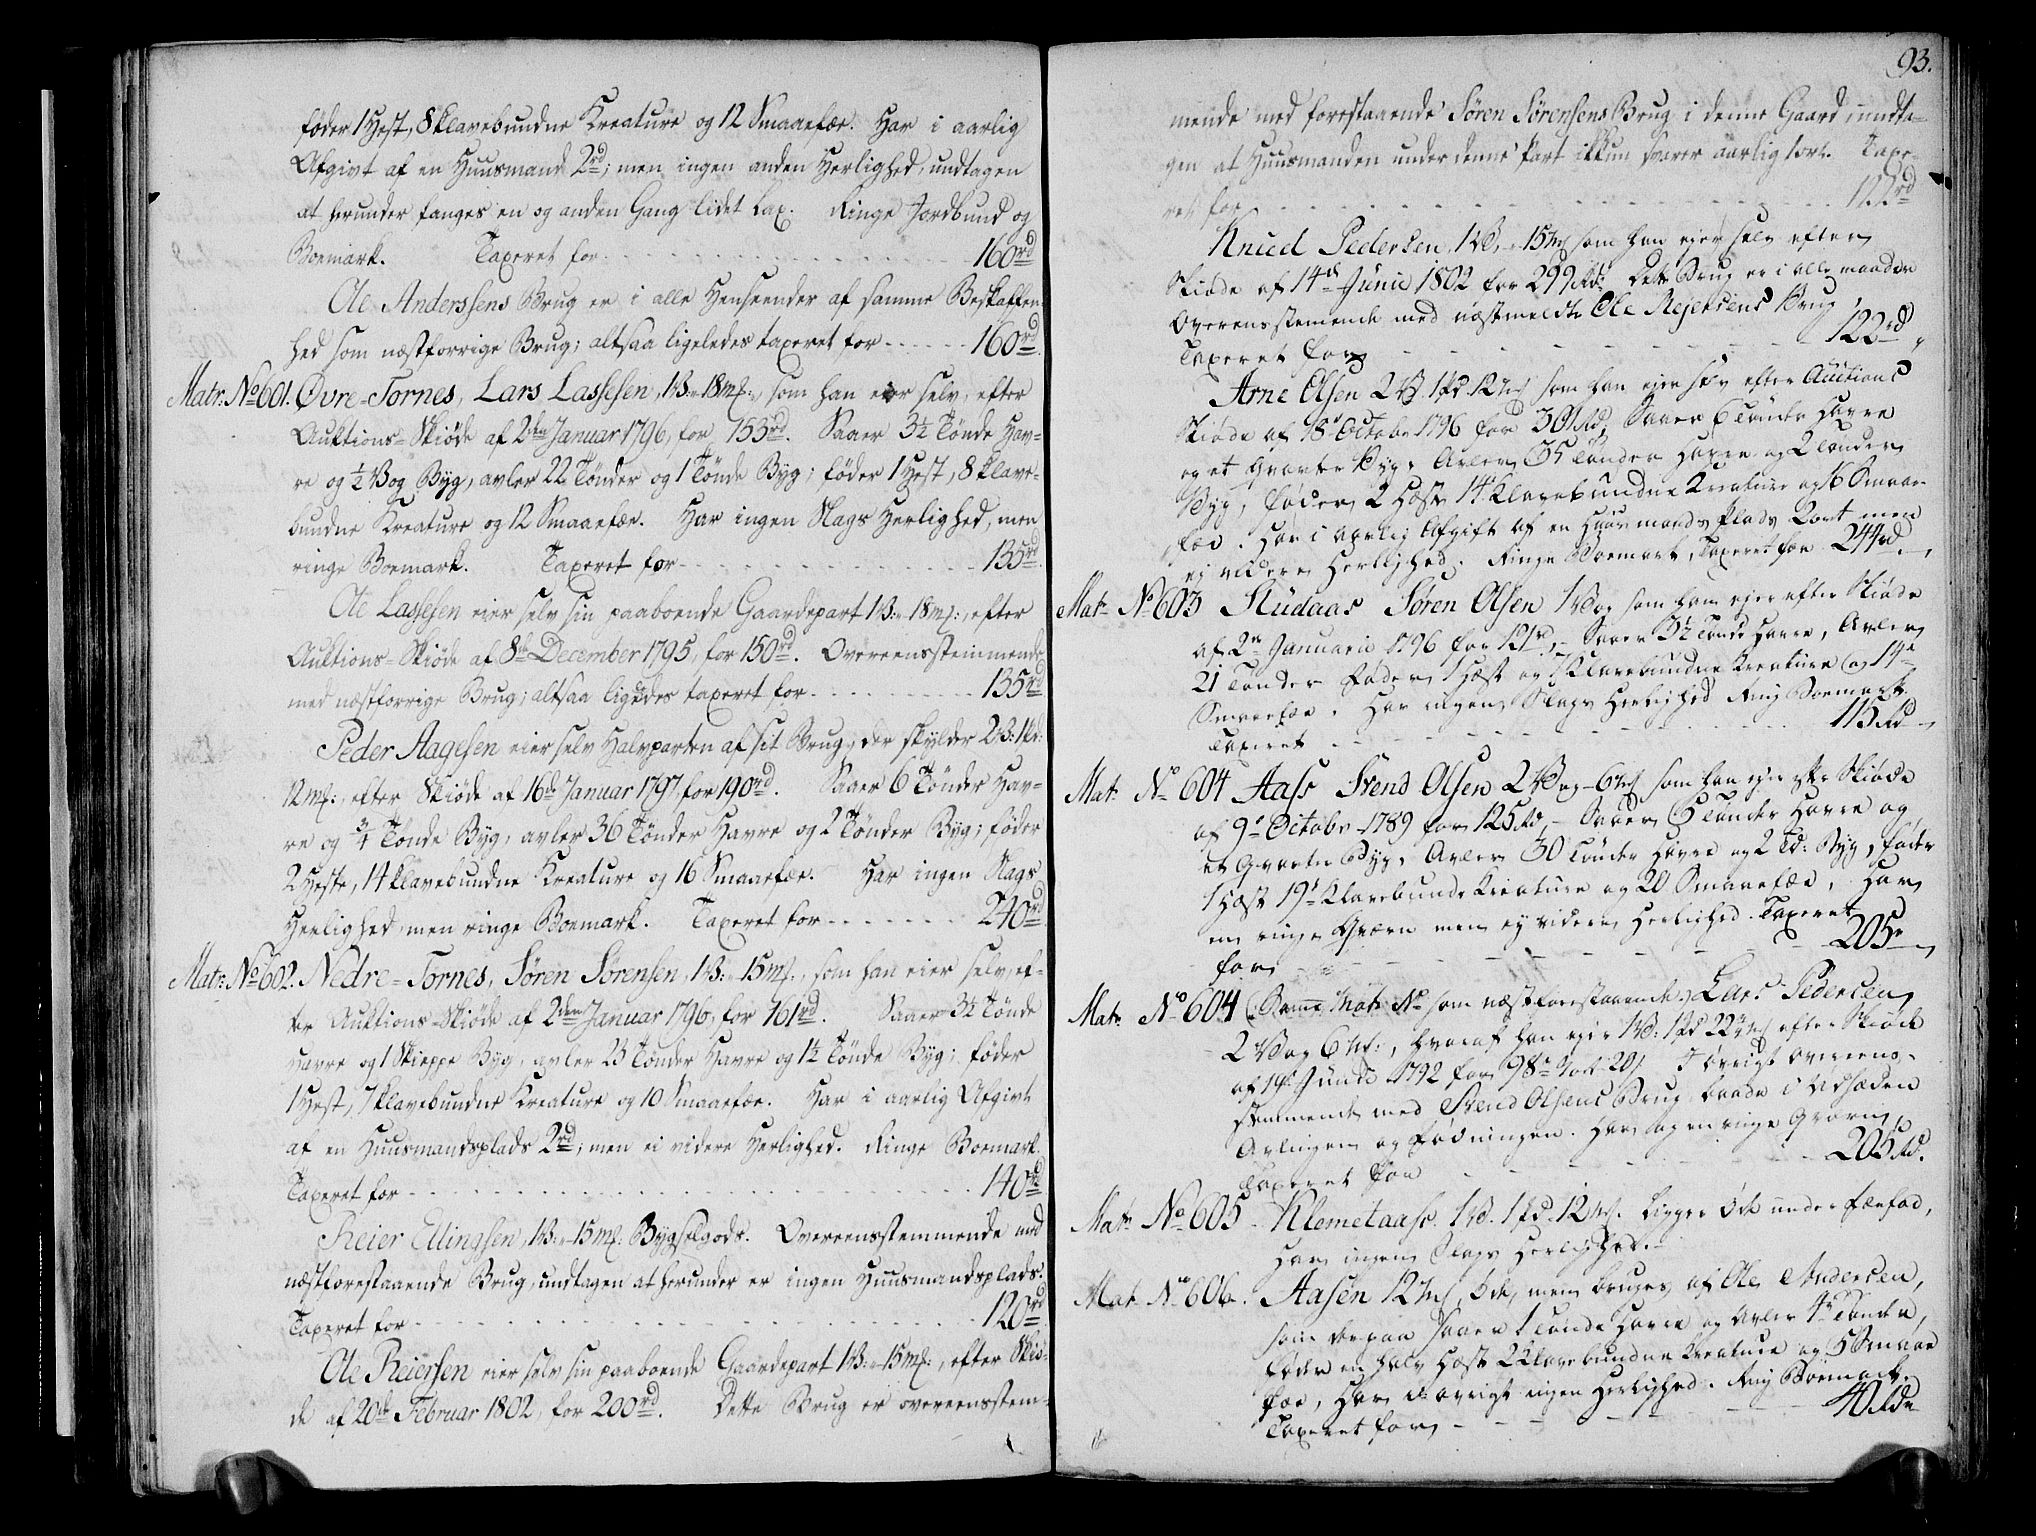 føder 1 Hest, 8 klavebundne Kreature og 12 Smaaefæe. Har i aarlig
Afgivt af en Huusmand 2rd; men ingen anden Herlighed, undtagen
at herunder fanges en og anden Gang lidet Lax. Ringe Jordbund og
Boemark. Taxeret for - - - 160rd
Ole Anderssens Brug er i alle Henseender af samme Beskaffen-
hed som næstforrige Brug; altsaa ligeledes taxeret for - - - 160rd.
Matr: No 601. Øvre-Tornes, Lars Lassesen, 1B: - 18mk:, som han eier selv, efter
Auktions-Skiøde af 2den Januar 1796, for 153rd. Saaer 3½ Tønde Hav-
re og ½ Vog Byg, avler 22 Tønder og 1 Tønde Byg; føder 1 Hest, 8 klave-
bundne Kreature og 12 Smaaefæe. Har ingen Slags Herlighed, men
ringe Boemark. Taxeret for - - - 135rd.
Ole Lassesen eier selv sin paaboende Gaardepart 1B: - 18mk:, efter
Auktions-Skiøde af 8de December 1795, for 150rd. Overeensstemmende
med næstforrige Brug; altsaa ligedes taxeret for - - - 135rd
Peder Aagesen eier selv Halvparten af sit Brug, der skylder 2B: 1pd:
12mk:, efter Skiøde af 16de Januar 1797, for 190rd. Saaer 6 Tønder Hav-
re og ¾ Tønde Byg, avler 36 Tønder Havre og 2 Tønder Byg; føder
2 Heste, 14 klavebundne Kreature og 16 Smaaefæe. Har ingen Slags
Herlighed, men ringe Boemark. Taxeret for - - - 240rd
Matr: No 602. Nedre-Tornes, Søren Sørensen, 1B: - 15mk:, som han eier selv, ef-
ter Auktions-Skiøde af 2den Januar 1796, for 161rd. Saaer 3½ Tønde
Havre og 1 Skieppe Byg, avler 23 Tønder Havre og 1½ Tønde Byg; føder
1 Hest, 7 klavebundne Kreature og 10 Smaaefæe. Har i aarlig Afgivt
af en Huusmandsplads 2rd; men ei videre Herlighed. Ringe Boemark.
Taxeret for - - - 140rd
Reier Ellingsen, 1B: - 15mk: Bygselgods. Overeensstemmende med
næstforestaaende Brug, undtagen at herunder er ingen Huusmandsplads.
Taxeret for - - - 120rd
Ole Reiersen eier selv sin paaboende Gaardepart 1B: - 15mk:, efter Skiø-
de af 20de Februar 1802, for 200rd. Dette Brug er overeensstem-
93.
mende med forestaaende Søren Sørensens Brug i denne Gaard, undta-
gen at Huusmanden under denne Part ikkun svarer aarlig 1ort. Taxe-
ret for - - - 122rd
Knud Pedersen 1B, - 15mk som han ejer selv efter
Skiøde af 14de Junii 1802 for 299 Rd. Dette Brug er i alle maader
Overensstemende med næstmeldte Ole Rejersens Brug,
Taxeret for - - - 122rd
Arne Olsen 2B. 1Pd. 12mk som han ejer selv efter Auctions
Skiøde af 18de Octobr 1796 for 301 Rd, Saaer 6 Tønder Havre
og et Qvarter Byg, Avler 35 Tønder Havre og 2 Tønder
Byg, føder 2 Hæste 14 Klavebundne Kreature og 16 Smaae-
fæe. Har i aarlig Afgift af en Huusmands plads 2ort men
ej videre Herlighed. Ringe Boemark, Taxeret for 244rd.
Matr No 603 Studaas Søren Olsen 1 Vog som han ejer efter Skiøde
af 2den Januarii 1796 for 121rd, - Saaer 3½ Tønde Havre, Avler
21 Tønder Føder 1 Hæst og 7 Klavebundne Kreature og 14
Smaaefæe. Har ingen Slags Herlighed Ring Boemark
Taxeret - - - 115 Rd
Mat: No 604 Aass Svend Olsen 2 Vog - 6mk som han ejer efter Skiøde
af 9de Octobr 1789 for 125 Rd, - Saaer 6 Tønder Havre og
et Qvarter Byg, Avler 30 Tønder Havre og 2 Td: Byg, føder
1 Hæst 19 Klavebunde Kreature og 20 Smaaefæe, Har
en ringe Qværn men ej videre Herlighed. Taxeret
for - - - 205rd
Matr No 604 (Same Matr No som næstforestaaende) Lars Pedersen
2 Vog 6mk:, hvoraf han ejer 1B: 1Pd 22½mk efter Skiøde
af 19de Junii 1792 for 98rd 1ort 20s I øvrigt overeens-
stemmende med Svend Olsens Brug baade i Udsæden
Avlingen og Fødningen. Har og en ringe Qværn,
Taxeret for - - - 205 Rd.
Matr No 605 - Klemetaass. 1B. 1Pd. 12mk. Ligger øde under Fæefod,
Har ingen Slags Herlighed.
Matr No 606. Aasen 12mk, øde, men bruges af Ole Andersen,
som derpaa saaer 1 Tønde Havre og Avler 4 Tønder,
Føder en halv Hæst 2 Klavebundne Kreature og 5 Smaae
fæe, Har i øvrigt ingen Herlighed. Ring Boemark.
Taxeret for - - - 40 Rdr